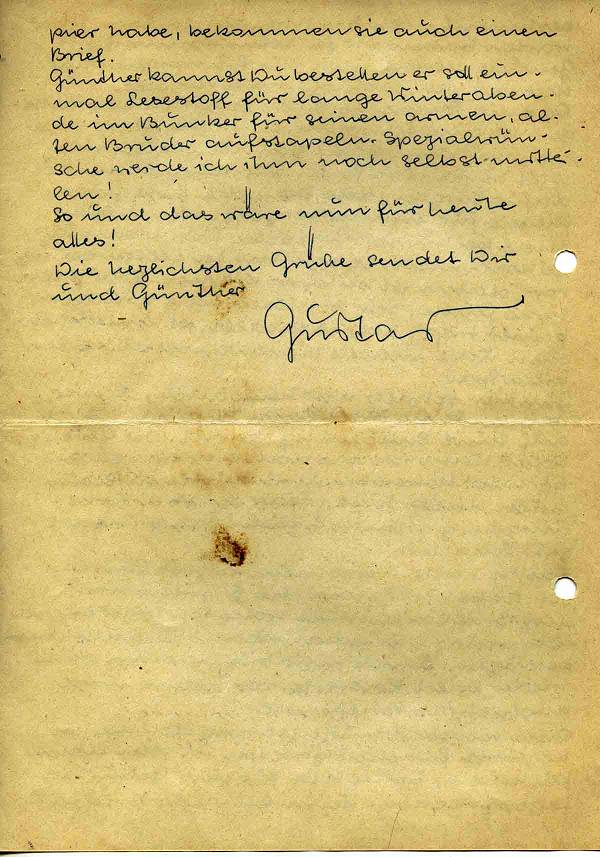 pier habe, bekommen sie auch einen
Brief.
Günther kannst Du bestellen er soll ein-
mal Lesestoff für lange Winteraben-
de im Bunker für seinen armen, al-
ten Bruder aufstapeln. Spezialwün-
sche werde ich ihm noch selbst mittei-
len!
So und das wäre nun für heute
alles!
Die herzlichsten Grüße sendet Dir
und Günther
Gustav